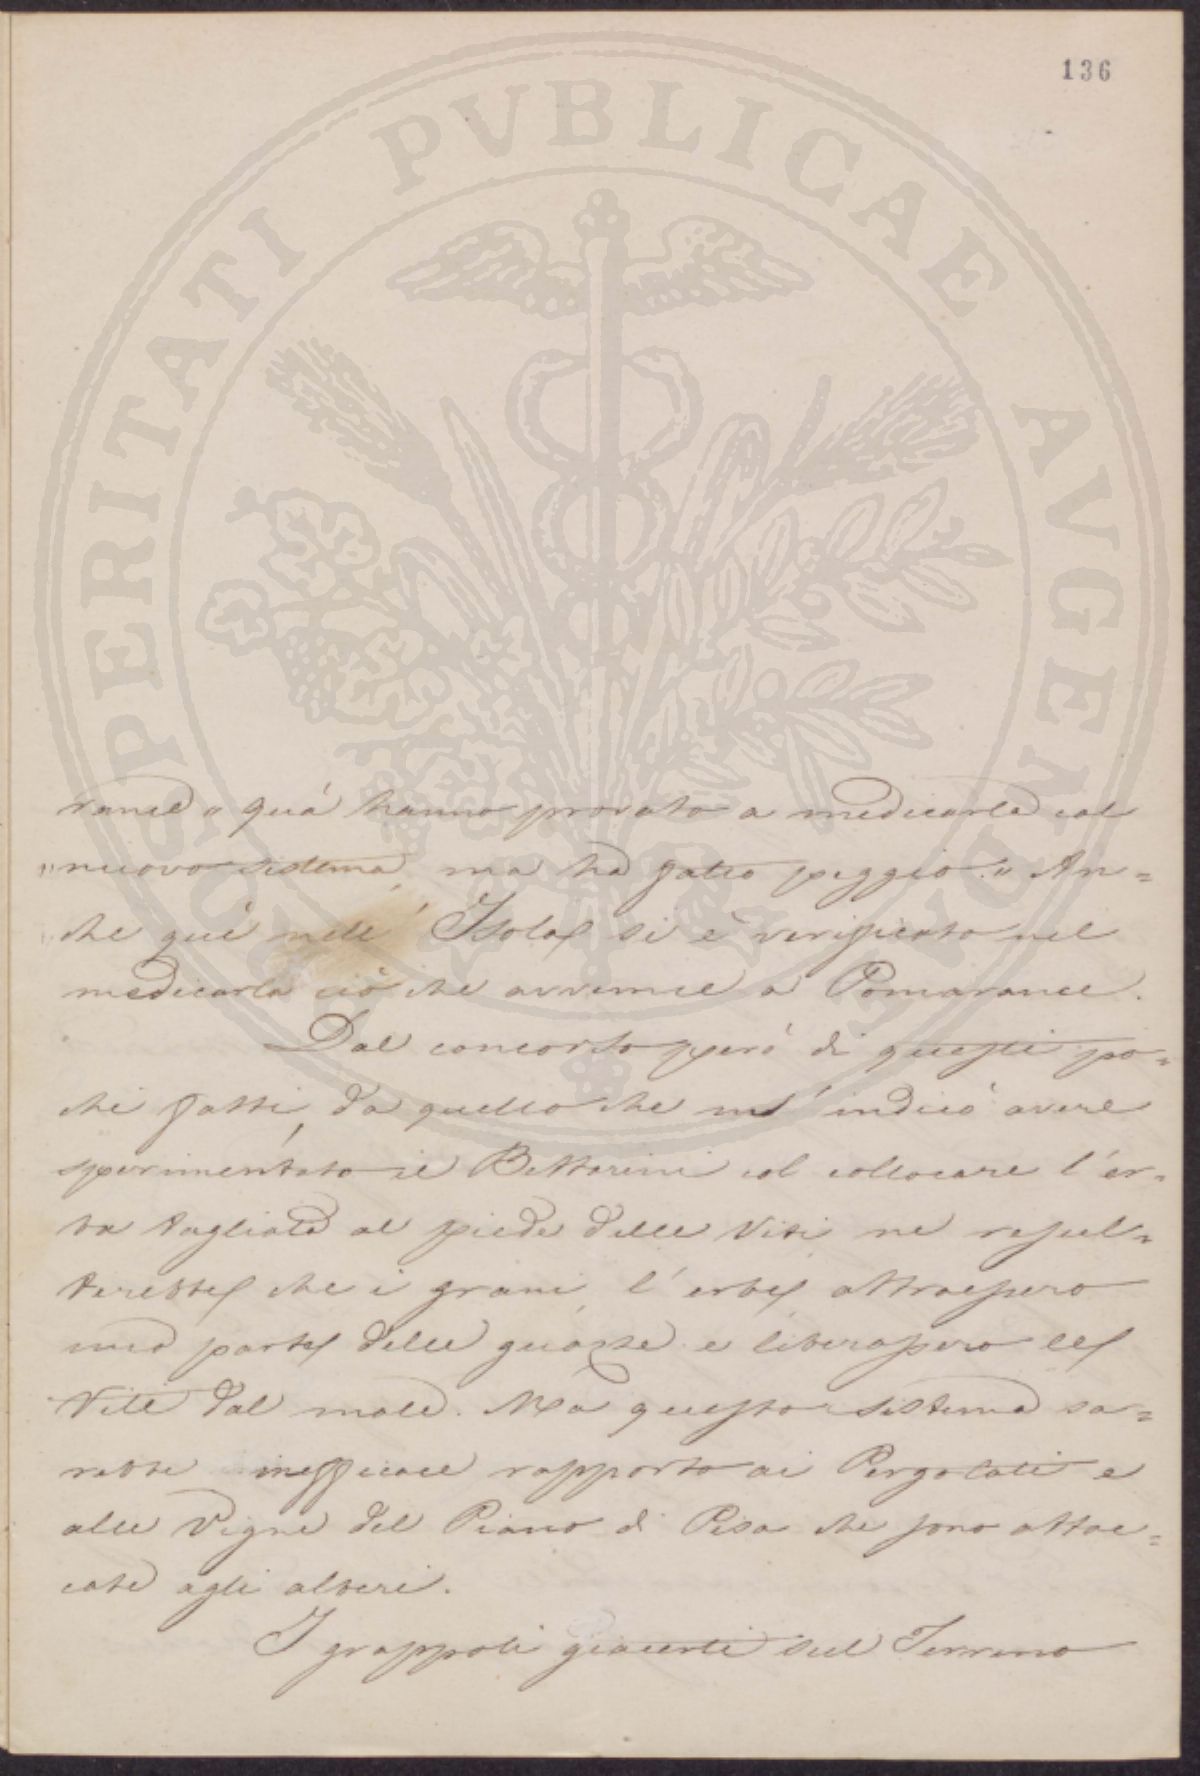 136
PROSPERITATI PVBLICAE AVGENDAE
rance „ quá hanno provato a medicarle col
„ nuovo sistema, ma ha fatto peggio. „ An=
che quì nell' Isola si è verificato nel
medicarla ciò che avvenne a Pomarance.
Dal concorso però di questi po=
chi fatti, da quello che m' indicò avere
sperimentato il Bettarini col collocare l' er=
ba tagliata al piede delle Viti ne resul=
terebbe che i grani, l' erbe attraessero
una parte delle guaste e liberassero le
Viti dal male. Ma questo sistema sa=
rebbe inefficace rapporto ai Pergolati e
alle Vigne del Piano di Pisa che sono attac=
cate agli alberi.
I grappoli giacenti sul Terreno